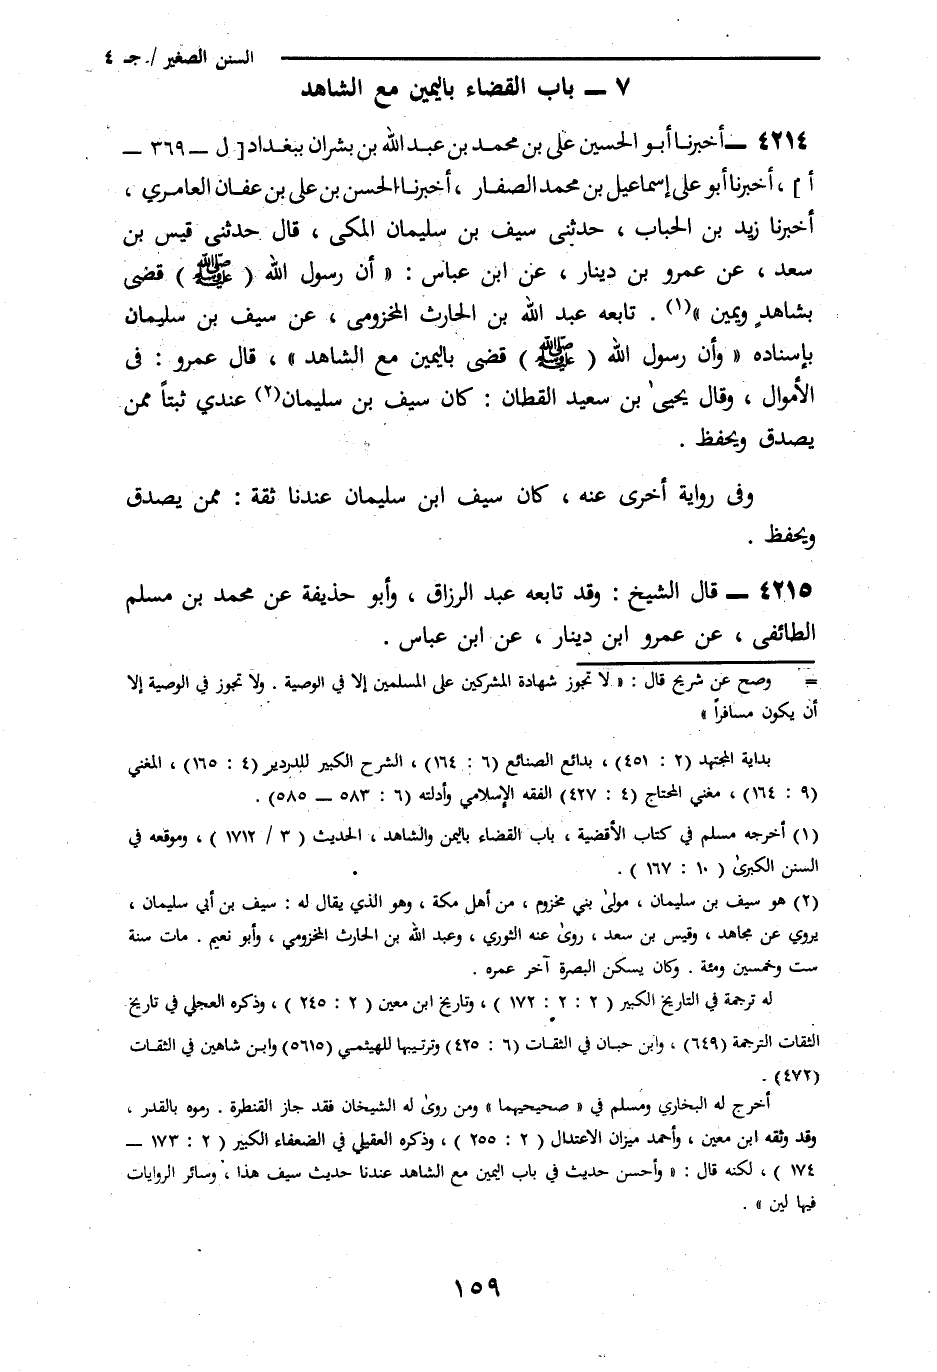 السنن الصغير /. جـ ٤
٧ ــ باب القضاء باليمين مع الشاهد
٤٢١٤ ــ أخبرنا أبو الحسين على بن محمد بن عبد الله بن بشران ببغداد [ ل ــ ٣٦٩ ــ
أ ] ، أخبرنا أبو على إسماعيل بن محمد الصفار ، أخبرنا الحسن بن على بن عفان العامرى ،
أخبرنا زيد بن الحباب ، حدثنى سيف بن سليمان المكى ، قال حدثنى قيس بن
سعد ، عن عمرو بن دينار ، عن ابن عباس : « أن رسول الله ( ﷺ ) قضى
بشاهدٍ ويمين »(١) . تابعه عبد الله بن الحارث المخزومى ، عن سيف بن سليمان
بإسناده « وأن رسول الله ( ﷺ ) قضى باليمين مع الشاهد » ، قال عمرو : فى
الأموال ، وقال يحيىٰ بن سعيد القطان : كان سيف بن سليمان(٢) عندي ثبتاً ممن
يصدق ويحفظ .
وفى رواية أخرى عنه ، كان سيف ابن سليمان عندنا ثقة : ممن يصدق
ويحفظ .
٤٢١٥ ــ قال الشيخ : وقد تابعه عبد الرزاق ، وأبو حذيفة عن محمد بن مسلم
الطائفى ، عن عمرو ابن دينار ، عن ابن عباس .
= وصح عن شريح قال : « لا تجوز شهادة المشركين على المسلمين إلا في الوصية . ولا تجوز في الوصية إلا
أن يكون مسافراً »
بداية المجتهد (٢ : ٤٥١) ، بدائع الصنائع (٦ : ١٦٤) ، الشرح الكبير للدردير (٤ : ١٦٥) ، المغني
(٩ : ١٦٤) ، مغني المحتاج (٤ : ٤٢٧) الفقه الإسلامي وأدلته (٦ : ٥٨٣ ــ ٥٨٥) .
(١) أخرجه مسلم في كتاب الأقضية ، باب القضاء باليمن والشاهد ، الحديث ( ٣ / ١٧١٢ ) ، وموقعه في
السنن الكبرىٰ ( ١٠ : ١٦٧ ) .
(٢) هو سيف بن سليمان ، مولىٰ بني مخزوم ، من أهل مكة ، وهو الذي يقال له : سيف بن أبي سليمان ،
يروي عن مجاهد ، وقيس بن سعد ، روىٰ عنه الثوري ، وعبد الله بن الحارث المخزومي ، وأبو نعيم . مات سنة
ست وخمسين ومئة . وكان يسكن البصرة آخر عمره .
له ترجمة في التاريخ الكبير ( ٢ : ٢ : ١٧٢ ) ، وتاريخ ابن معين ( ٢ : ٢٤٥ ) ، وذكره العجلي في تاريخ
الثقات الترجمة (٦٤٩) ، وابن حبان في الثقات (٦ : ٤٢٥) وترتيبها للهيثمي (٥٦١٥) وابن شاهين في الثقات
(٤٧٢) .
أخرج له البخاري ومسلم في « صحيحيهما » ومن روىٰ له الشيخان فقد جاز القنطرة . رموه بالقدر ،
وقد وثقه ابن معين ، وأحمد ميزان الاعتدال ( ٢ : ٢٥٥ ) ، وذكره العقيلي في الضعفاء الكبير ( ٢ : ١٧٣ ــ
١٧٤ ) ، لكنه قال : « وأحسن حديث في باب اليمين مع الشاهد عندنا حديث سيف هذا ، وسائر الروايات
فيها لين » .
١٥٩